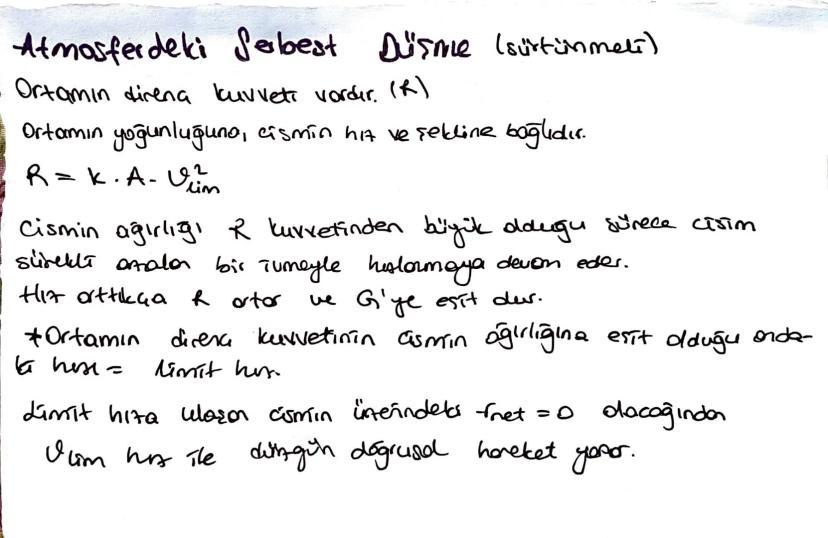 Atmosferdeki Serbest Düşme (sürtünmeli)
Ortamın direnci kuvveti vardır. (R)
Ortamın yoğunluğuna, cismin hız ve şekline bağlıdır.
R = k . A - υ²lim
Cismin ağırlığı R kuvvetinden büyük olduğu sürece cisim
sürekli azalan bir ivmeyle hızlanmaya devam eder.
Hız arttıkça R artar ve G'ye eşit olur.
*Ortamın direnç kuvvetinin cismin ağırlığına eşit olduğu anda-
ki hızı = limit hız.
Limit hıza ulaşan cismin üzerindeki Fnet = 0 olacağından
υlim hız ile düzgün doğrusal hareket yapar.